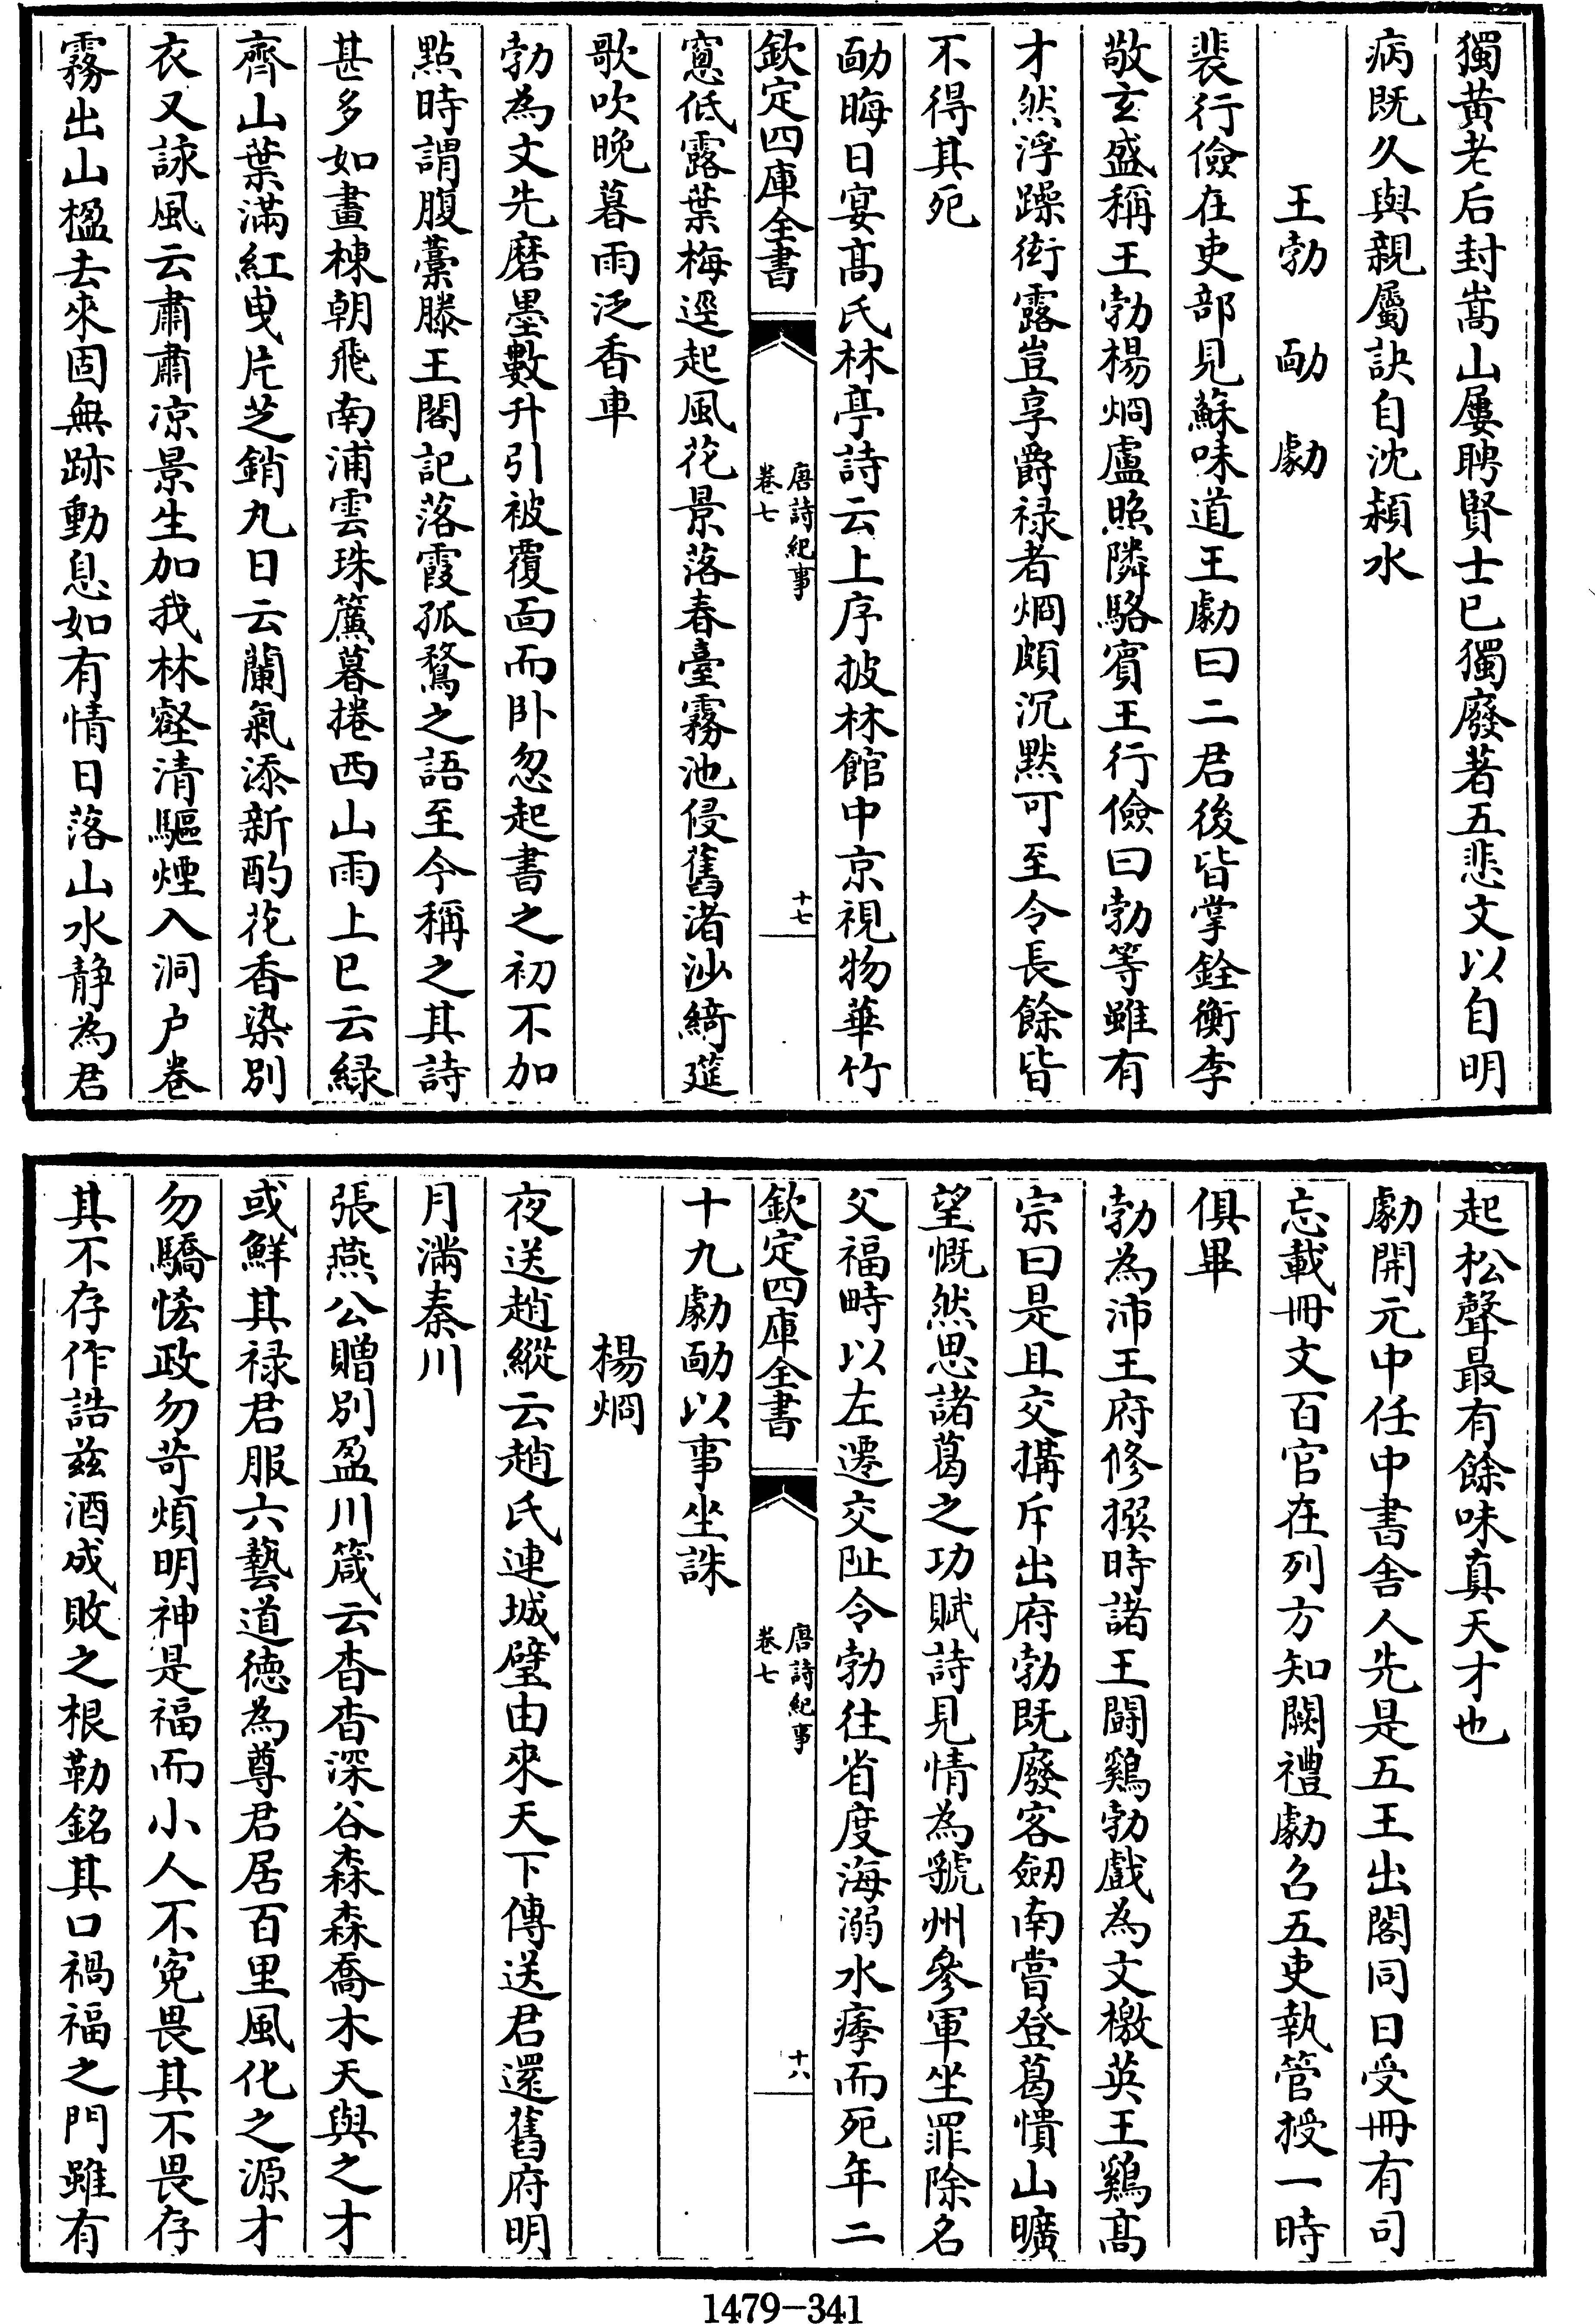 獨黄老后封嵩山屢聘賢士已獨廢著五悲文以自明
病既久與親屬訣自沈潁水
王勃　勔　勮
裴行儉在吏部見蘇味道王勮曰二君後皆掌銓衡李
敬玄盛稱王勃楊烱盧照隣駱賓王行儉曰勃等雖有
才然浮躁衒露豈享爵禄者烱頗沉默可至令長餘皆
不得其死
勔晦日宴髙氏林亭詩云上序披林館中京視物華竹
欽定四庫全書
唐詩紀事
卷七
十七
窻低露葉梅逕起風花景落春臺霧池侵舊渚沙綺筵
歌吹晚暮雨泛香車
勃為文先磨墨數升引被覆面而卧忽起書之初不加
點時謂腹藳滕王閣記落霞孤鶩之語至今稱之其詩
甚多如畫棟朝飛南浦雲珠簾暮捲西山雨上巳云緑
齊山葉滿紅曳片芝銷九日云蘭氣添新酌花香染别
衣又詠風云肅肅凉景生加我林壑清驅煙入洞户卷
霧出山楹去來固無跡動息如有情日落山水静為君
起松聲最有餘味真天才也
勮開元中任中書舍人先是五王出閣同日受冊有司
忘載冊文百官在列方知闕禮勮召五吏執管授一時
俱畢
勃為沛王府修撰時諸王鬭鷄勃戲為文檄英王鷄髙
宗曰是且交搆斥出府勃既廢客劒南嘗登葛憒山曠
望慨然思諸葛之功賦詩見情為虢州參軍坐罪除名
父福畤以左遷交阯令勃往省度海溺水痵而死年二
欽定四庫全書
唐詩紀事
卷七
十八
十九勮勔以事坐誅
楊烱
夜送趙縱云趙氏連城璧由來天下傳送君還舊府明
月滿秦川
張燕公贈别盈川箴云杳杳深谷森森喬木天與之才
或鮮其禄君服六藝道徳為尊君居百里風化之源才
勿驕悋政勿苛煩明神是福而小人不寃畏其不畏存
其不存作誥兹酒成敗之根勒銘其口禍福之門雖有
1479-341